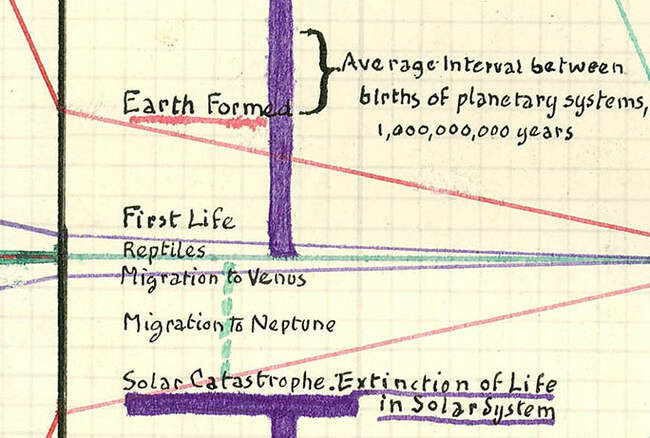 Average Interval between
births of planetary systems,
1,000,000,000 years
Earth Formed
First Life
Reptiles
Migration to Venus
Migration to Neptune
Solar Catastrophe. Extinction of Life
in Solar System